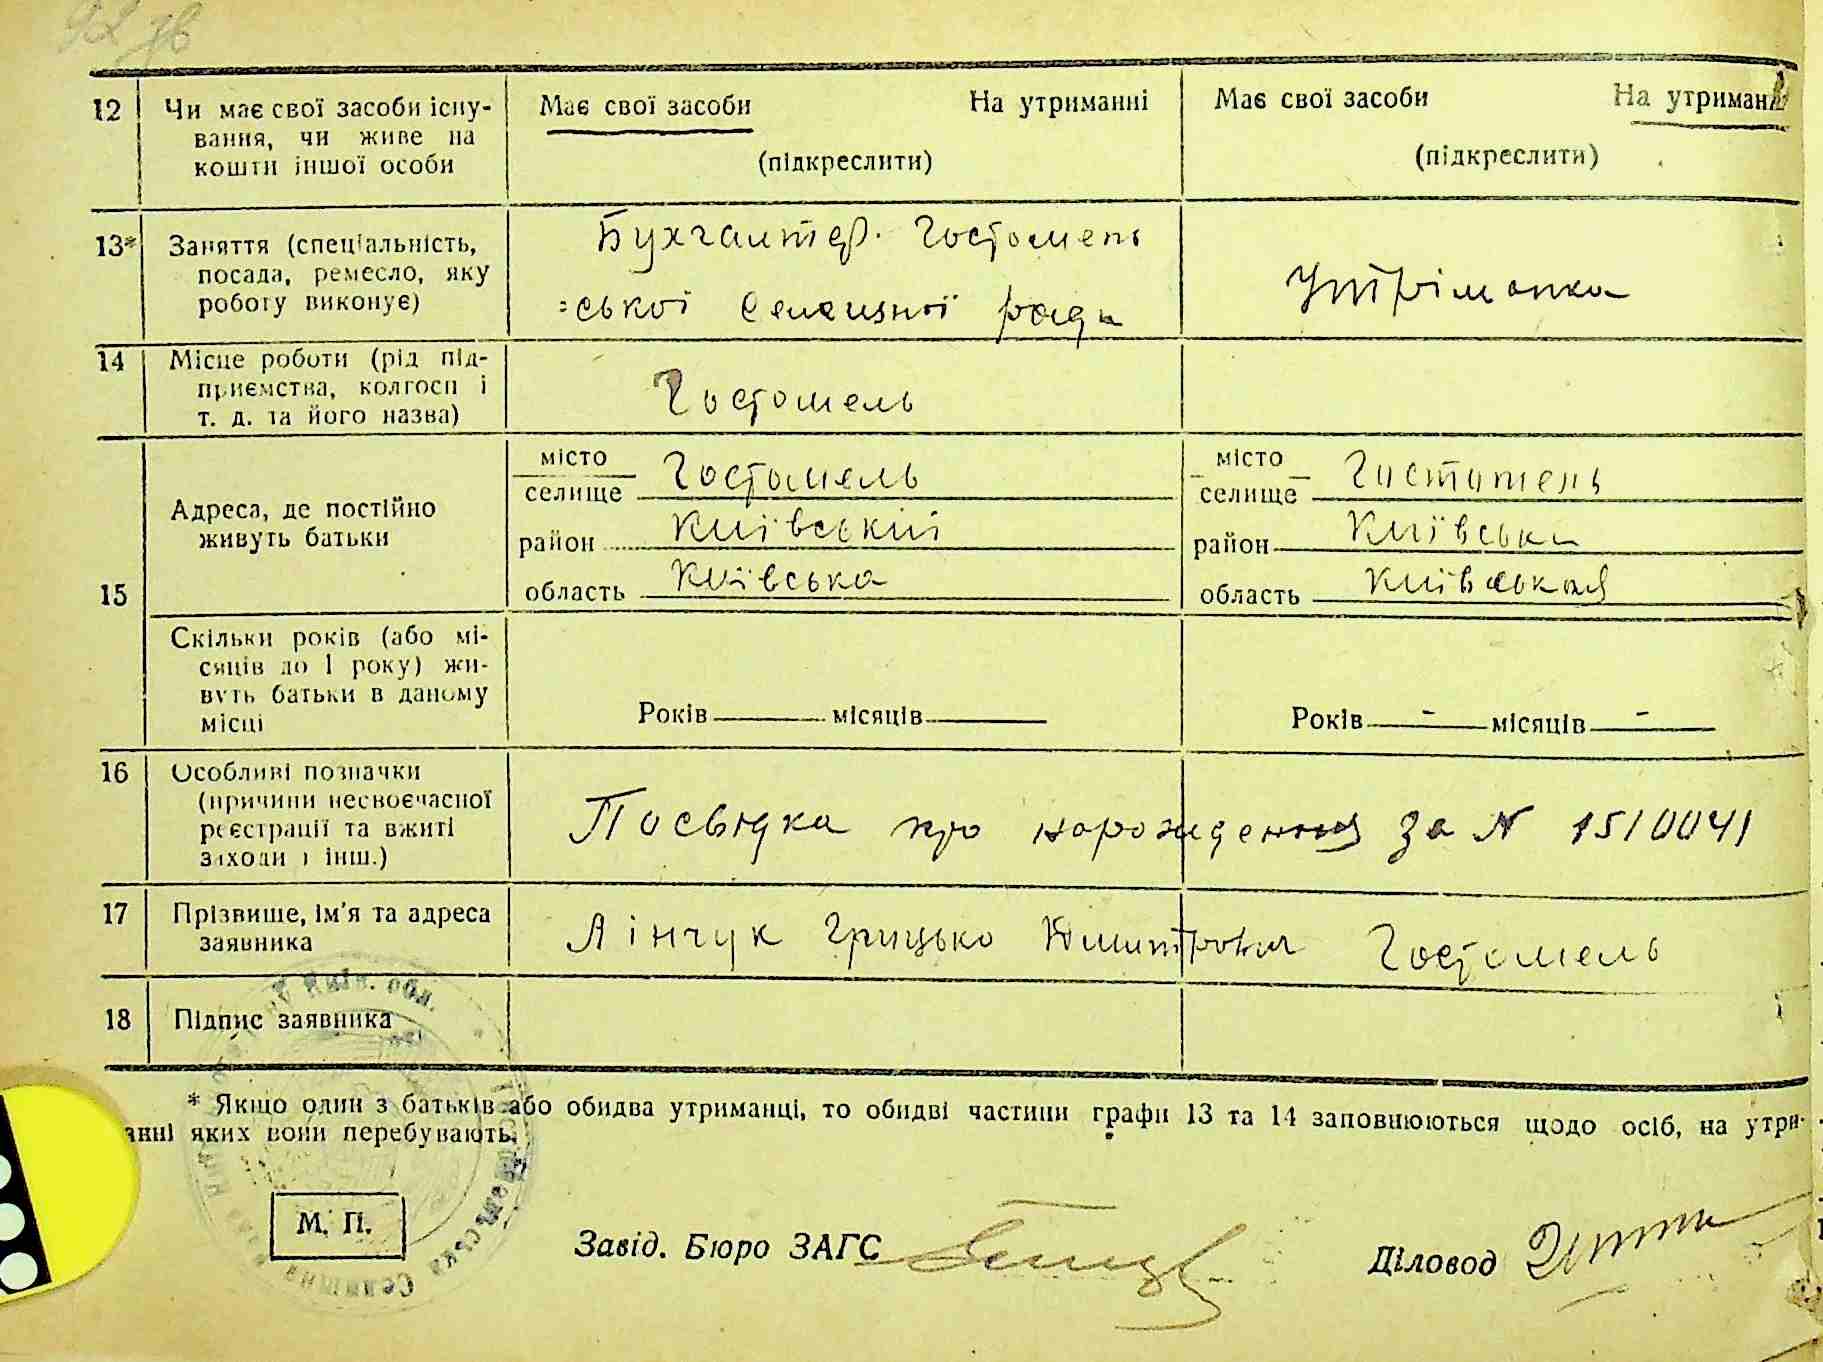 92 зв
12 Чи має свої засоби існу- Має свої засоби На утриманні Має свої засоби На утриманні
вання, чи живе на
кошти іншої особи (підкреслити) (підкреслити)
13* Заняття (спеціальність, Бухгалтер. Гостомель
посада, ремесло, яку Утріманка
роботу виконує) =ської Селищної ради
14 Місце роботи (рід під-
приємства, колгосп і Гостомель
т. д. та його назва)
місто Гостомель місто Гостомель
селище селище
Адреса, де постійно
живуть батьки район Київський район Київськи
15 область Київська область Київськая
Скільки років (або мі-
сяців до 1 року) жи-
вуть батьки в даному
місці Років місяців Років - місяців -
16 Особливі позначки
(причини несвоєчасної Посвідка про нарождення за N 1510041
реєстрації та вжиті
заходи і інш.)
17 Прізвище, ім'я та адреса Лінчук Грицько Дмитрович Гостомель
заявника
18 Підпис заявника
* Якщо один з батьків або обидва утриманці, то обидві частини графи 13 та 14 заповнюються щодо осіб, на утри-
анні яких вони перебувають.
М. П. Завід. Бюро ЗАГС Діловод
Київ. обл.
Селищна